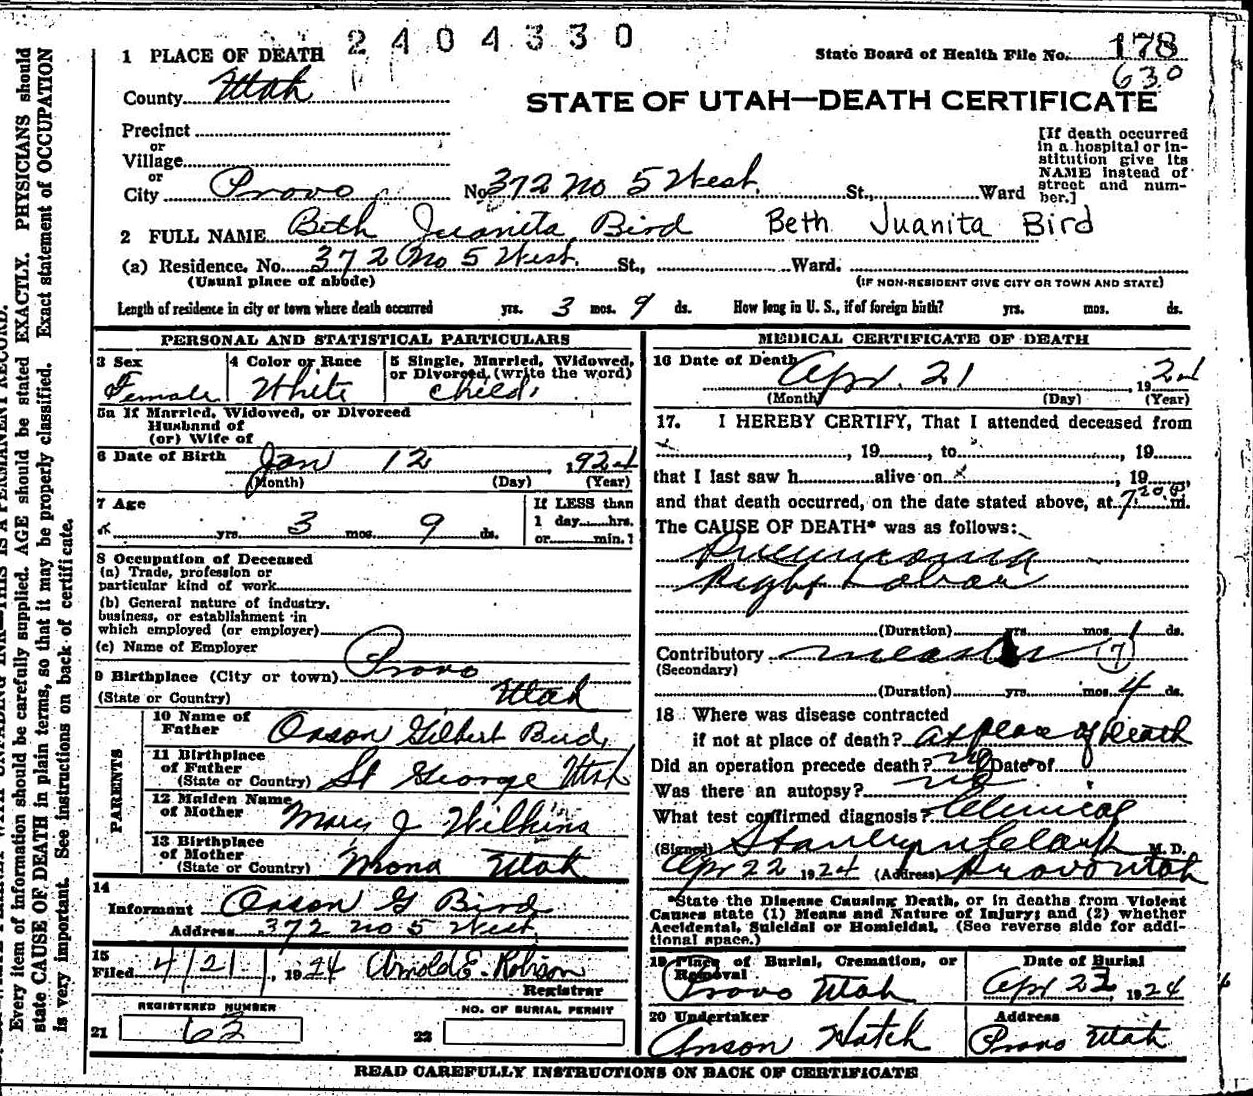 2404330
1 PLACE OF DEATH
State Board of Health File No. 178
630
County Utah
STATE OF UTAH—DEATH CERTIFICATE
Precinct
or
Village
or
City Provo No. 372 No 5 West St., Ward
[If death occurred
in a hospital or in-
stitution give its
NAME instead of
street and num-
ber.]
2 FULL NAME Beth Juanita Bird Beth Juanita Bird
(a) Residence. No. 372 No 5 West. St., Ward.
(Usual place of abode) (IF NON-RESIDENT GIVE CITY OR TOWN AND STATE)
Length of residence in city or town where death occurred yrs. 3 mos. 9 ds. How long in U. S., if of foreign birth? yrs. mos. ds.
PERSONAL AND STATISTICAL PARTICULARS
3 Sex Female
4 Color or Race White
5 Single, Married, Widowed,
or Divorced, (write the word)
Child
5a If Married, Widowed, or Divorced
Husband of
(or) Wife of
6 Date of Birth Jan 12, 1924
(Month) (Day) (Year)
7 Age
yrs. 3 mos. 9 ds.
If LESS than
1 day hrs.
or min.?
8 Occupation of Deceased
(a) Trade, profession or
particular kind of work
(b) General nature of industry,
business, or establishment in
which employed (or employer)
(c) Name of Employer
9 Birthplace (City or town) Provo
(State or Country) Utah
PARENTS
10 Name of
Father Orson Gilbert Bird
11 Birthplace
of Father
(State or Country) St George Utah
12 Maiden Name
of Mother Mary J Wilkins
13 Birthplace
of Mother
(State or Country) Mona Utah
14
Informant Orson G Bird
Address 372 no 5 West
15
Filed 4/21, 1924 Arnold E. Robison
Registrar
REGISTERED NUMBER
21 62
NO. OF BURIAL PERMIT
22
MEDICAL CERTIFICATE OF DEATH
16 Date of Death Apr. 21, 1924
(Month) (Day) (Year)
17. I HEREBY CERTIFY, That I attended deceased from
x, 19, to, 19
that I last saw h alive on x, 19,
and that death occurred, on the date stated above, at 7:20 P m.
The CAUSE OF DEATH* was as follows:
Pneumonia
Right Lobar
(Duration) yrs. mos. 1 ds.
Contributory measles (7)
(Secondary)
(Duration) yrs. mos. 4 ds.
18 Where was disease contracted
if not at place of death? at place of Death
Did an operation precede death? no Date of
Was there an autopsy? no
What test confirmed diagnosis? Clinical
(Signed) Stanley M Clark M. D.
Apr 22 1924 (Address) Provo Utah
*State the Disease Causing Death, or in deaths from Violent
Causes state (1) Means and Nature of Injury; and (2) whether
Accidental, Suicidal or Homicidal. (See reverse side for addi-
tional space.)
19 Place of Burial, Cremation, or
Removal
Provo Utah
Date of Burial
Apr 23, 1924
20 Undertaker
Anson Hatch
Address
Provo Utah
READ CAREFULLY INSTRUCTIONS ON BACK OF CERTIFICATE
Every item of information should be carefully supplied. AGE should be stated EXACTLY. PHYSICIANS should
state CAUSE OF DEATH in plain terms, so that it may be properly classified. Exact statement of OCCUPATION
is very important. See instructions on back of certificate.